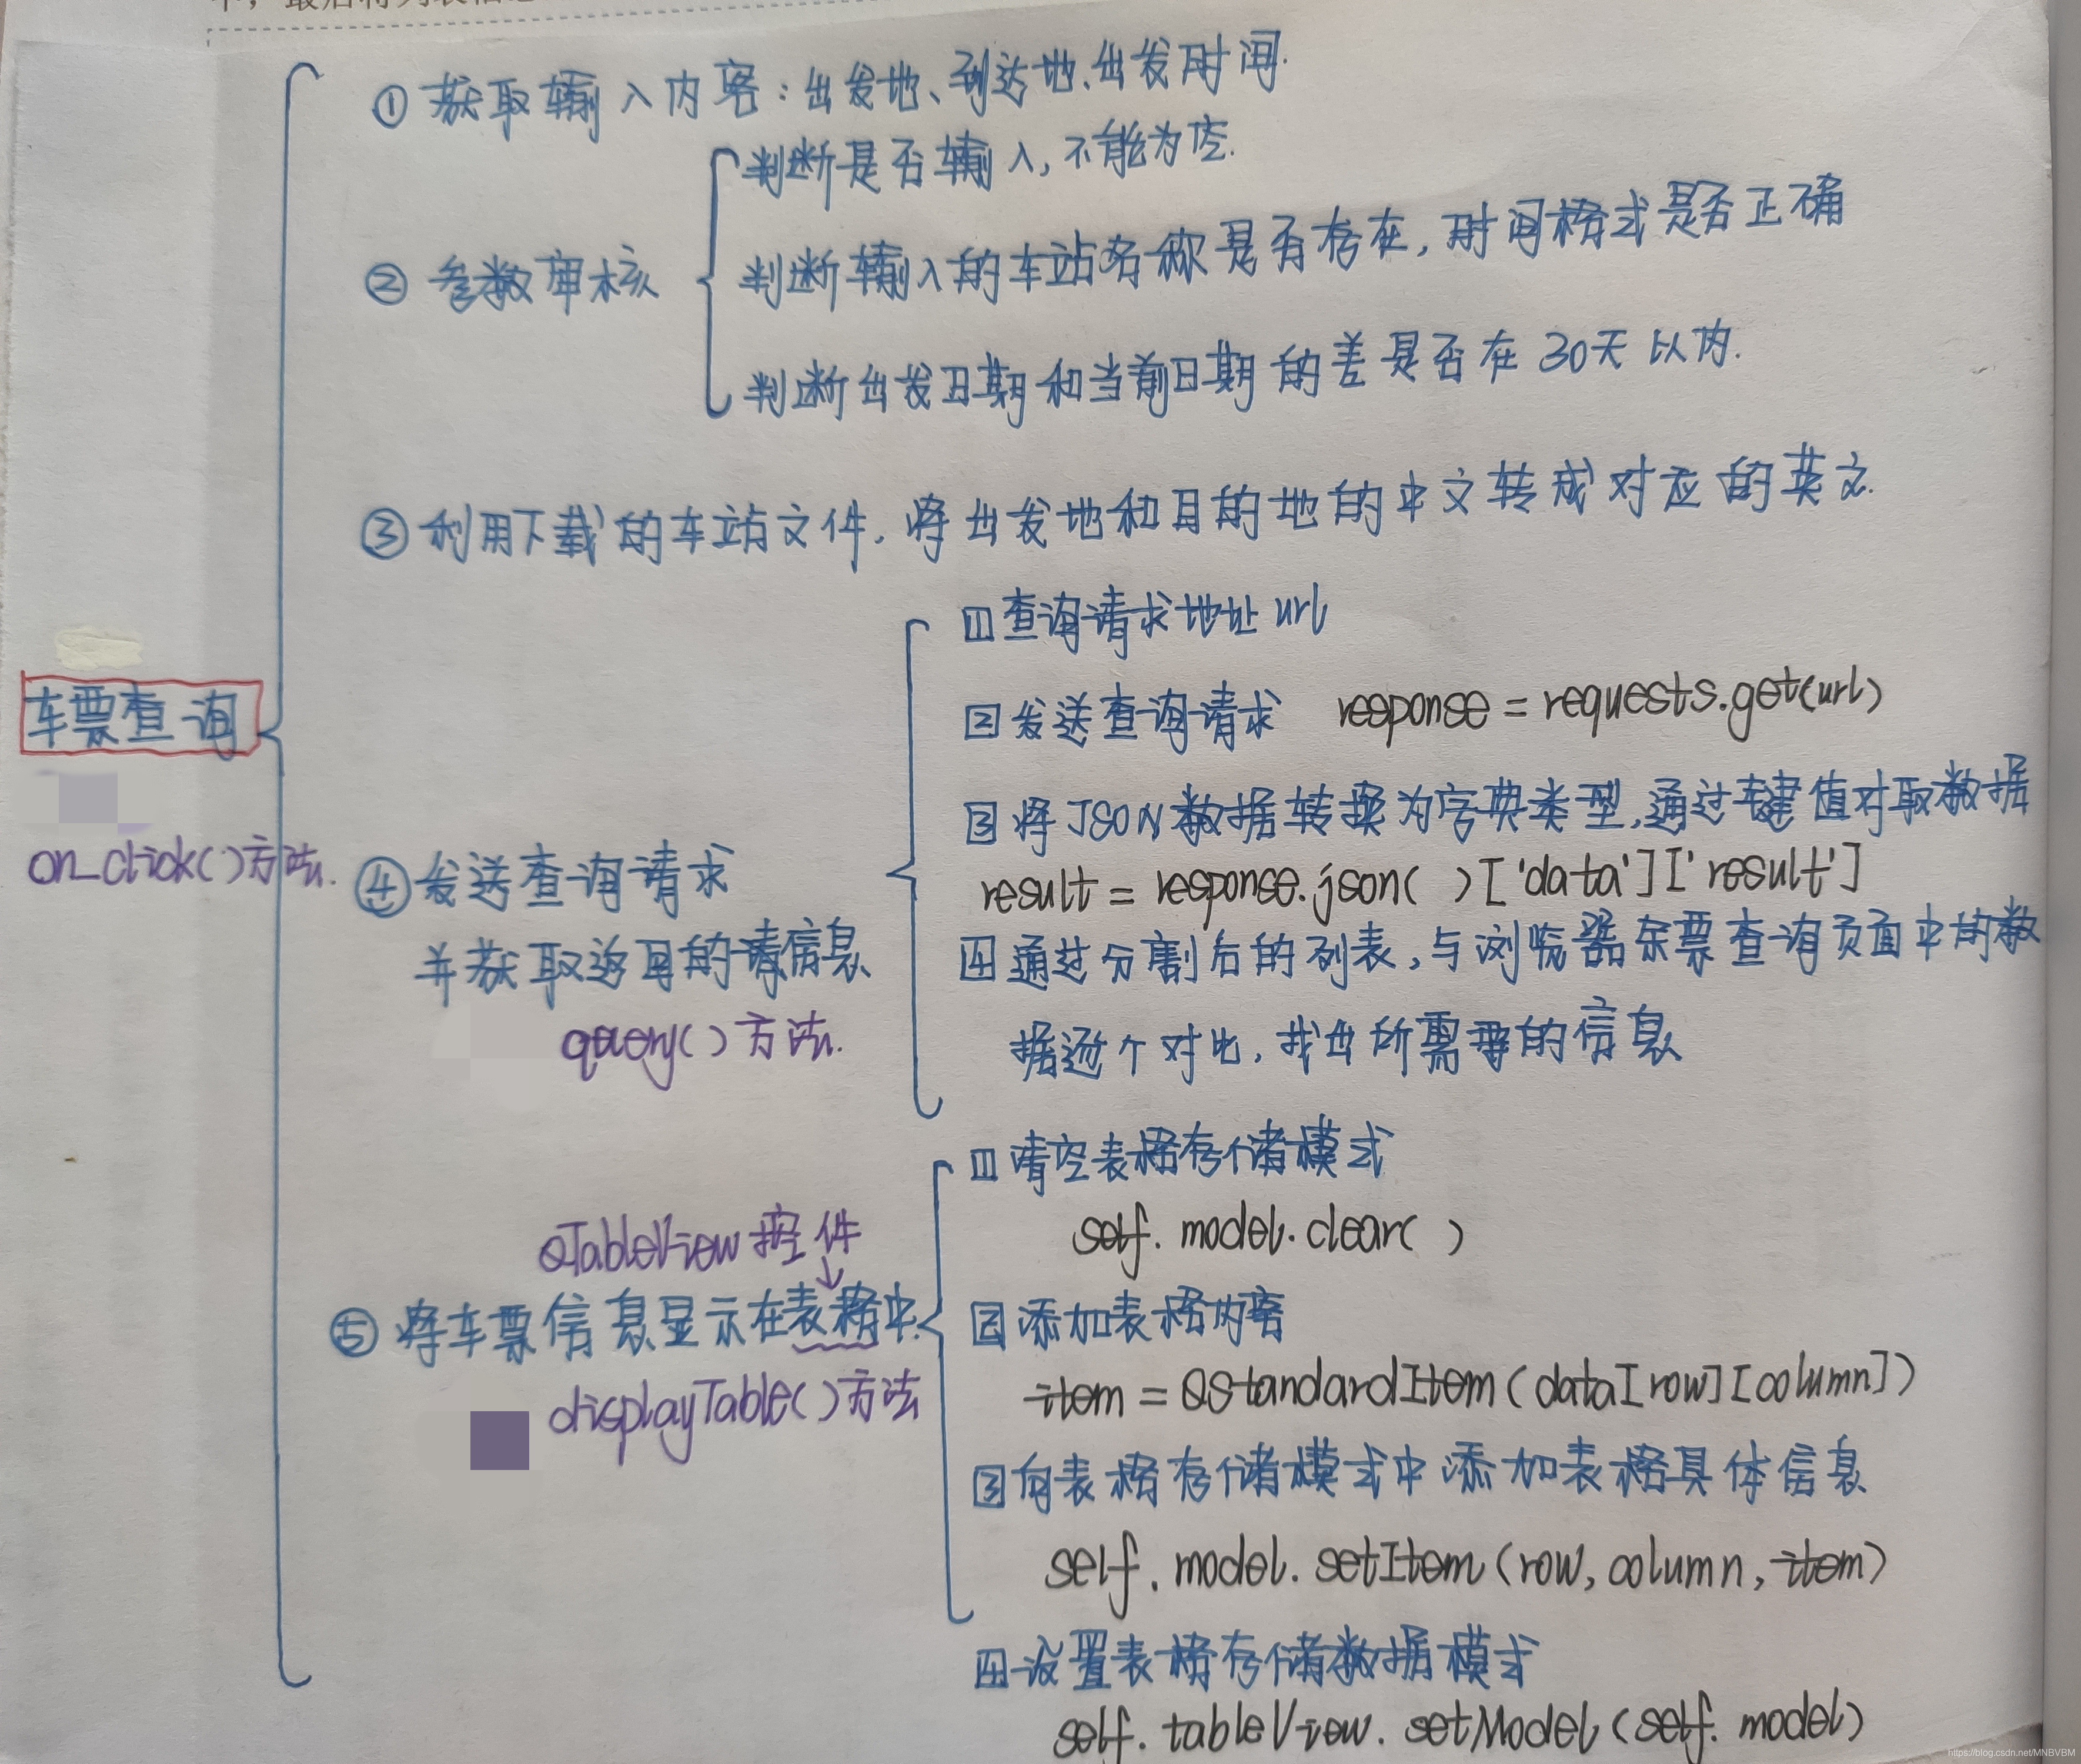 ① 获取输入内容：出发地、到达地、出发时间.
判断是否输入，不能为空.
② 参数审核
判断输入的车站名称是否存在，时间格式是否正确
判断出发日期和当前日期的差是否在30天以内.
③ 利用下载的车站文件，将出发地和目的地的中文转成对应的英文.
车票查询
on_click()方法.
④ 发送查询请求
并获取返回的请信息
query()方法.
1 查询请求地址url
2 发送查询请求 response = requests.get(url)
3 将JSON数据转换为字典类型，通过键值对取数据
result = response.json( )['data']['result']
4 通过分割后的列表，与浏览器余票查询页面中的数
据逐个对比，找出所需要的信息
QTableView控件
↓
⑤ 将车票信息显示在表格中.
displayTable()方法
1 清空表格存储模式
self.model.clear( )
2 添加表格内容
item = QStandardItem(data[row][column])
3 向表格存储模式中添加表格具体信息
self.model.setItem(row,column,item)
4 设置表格存储数据模式
self.tableView.setModel(self.model)
https://blog.csdn.net/MNBVBM